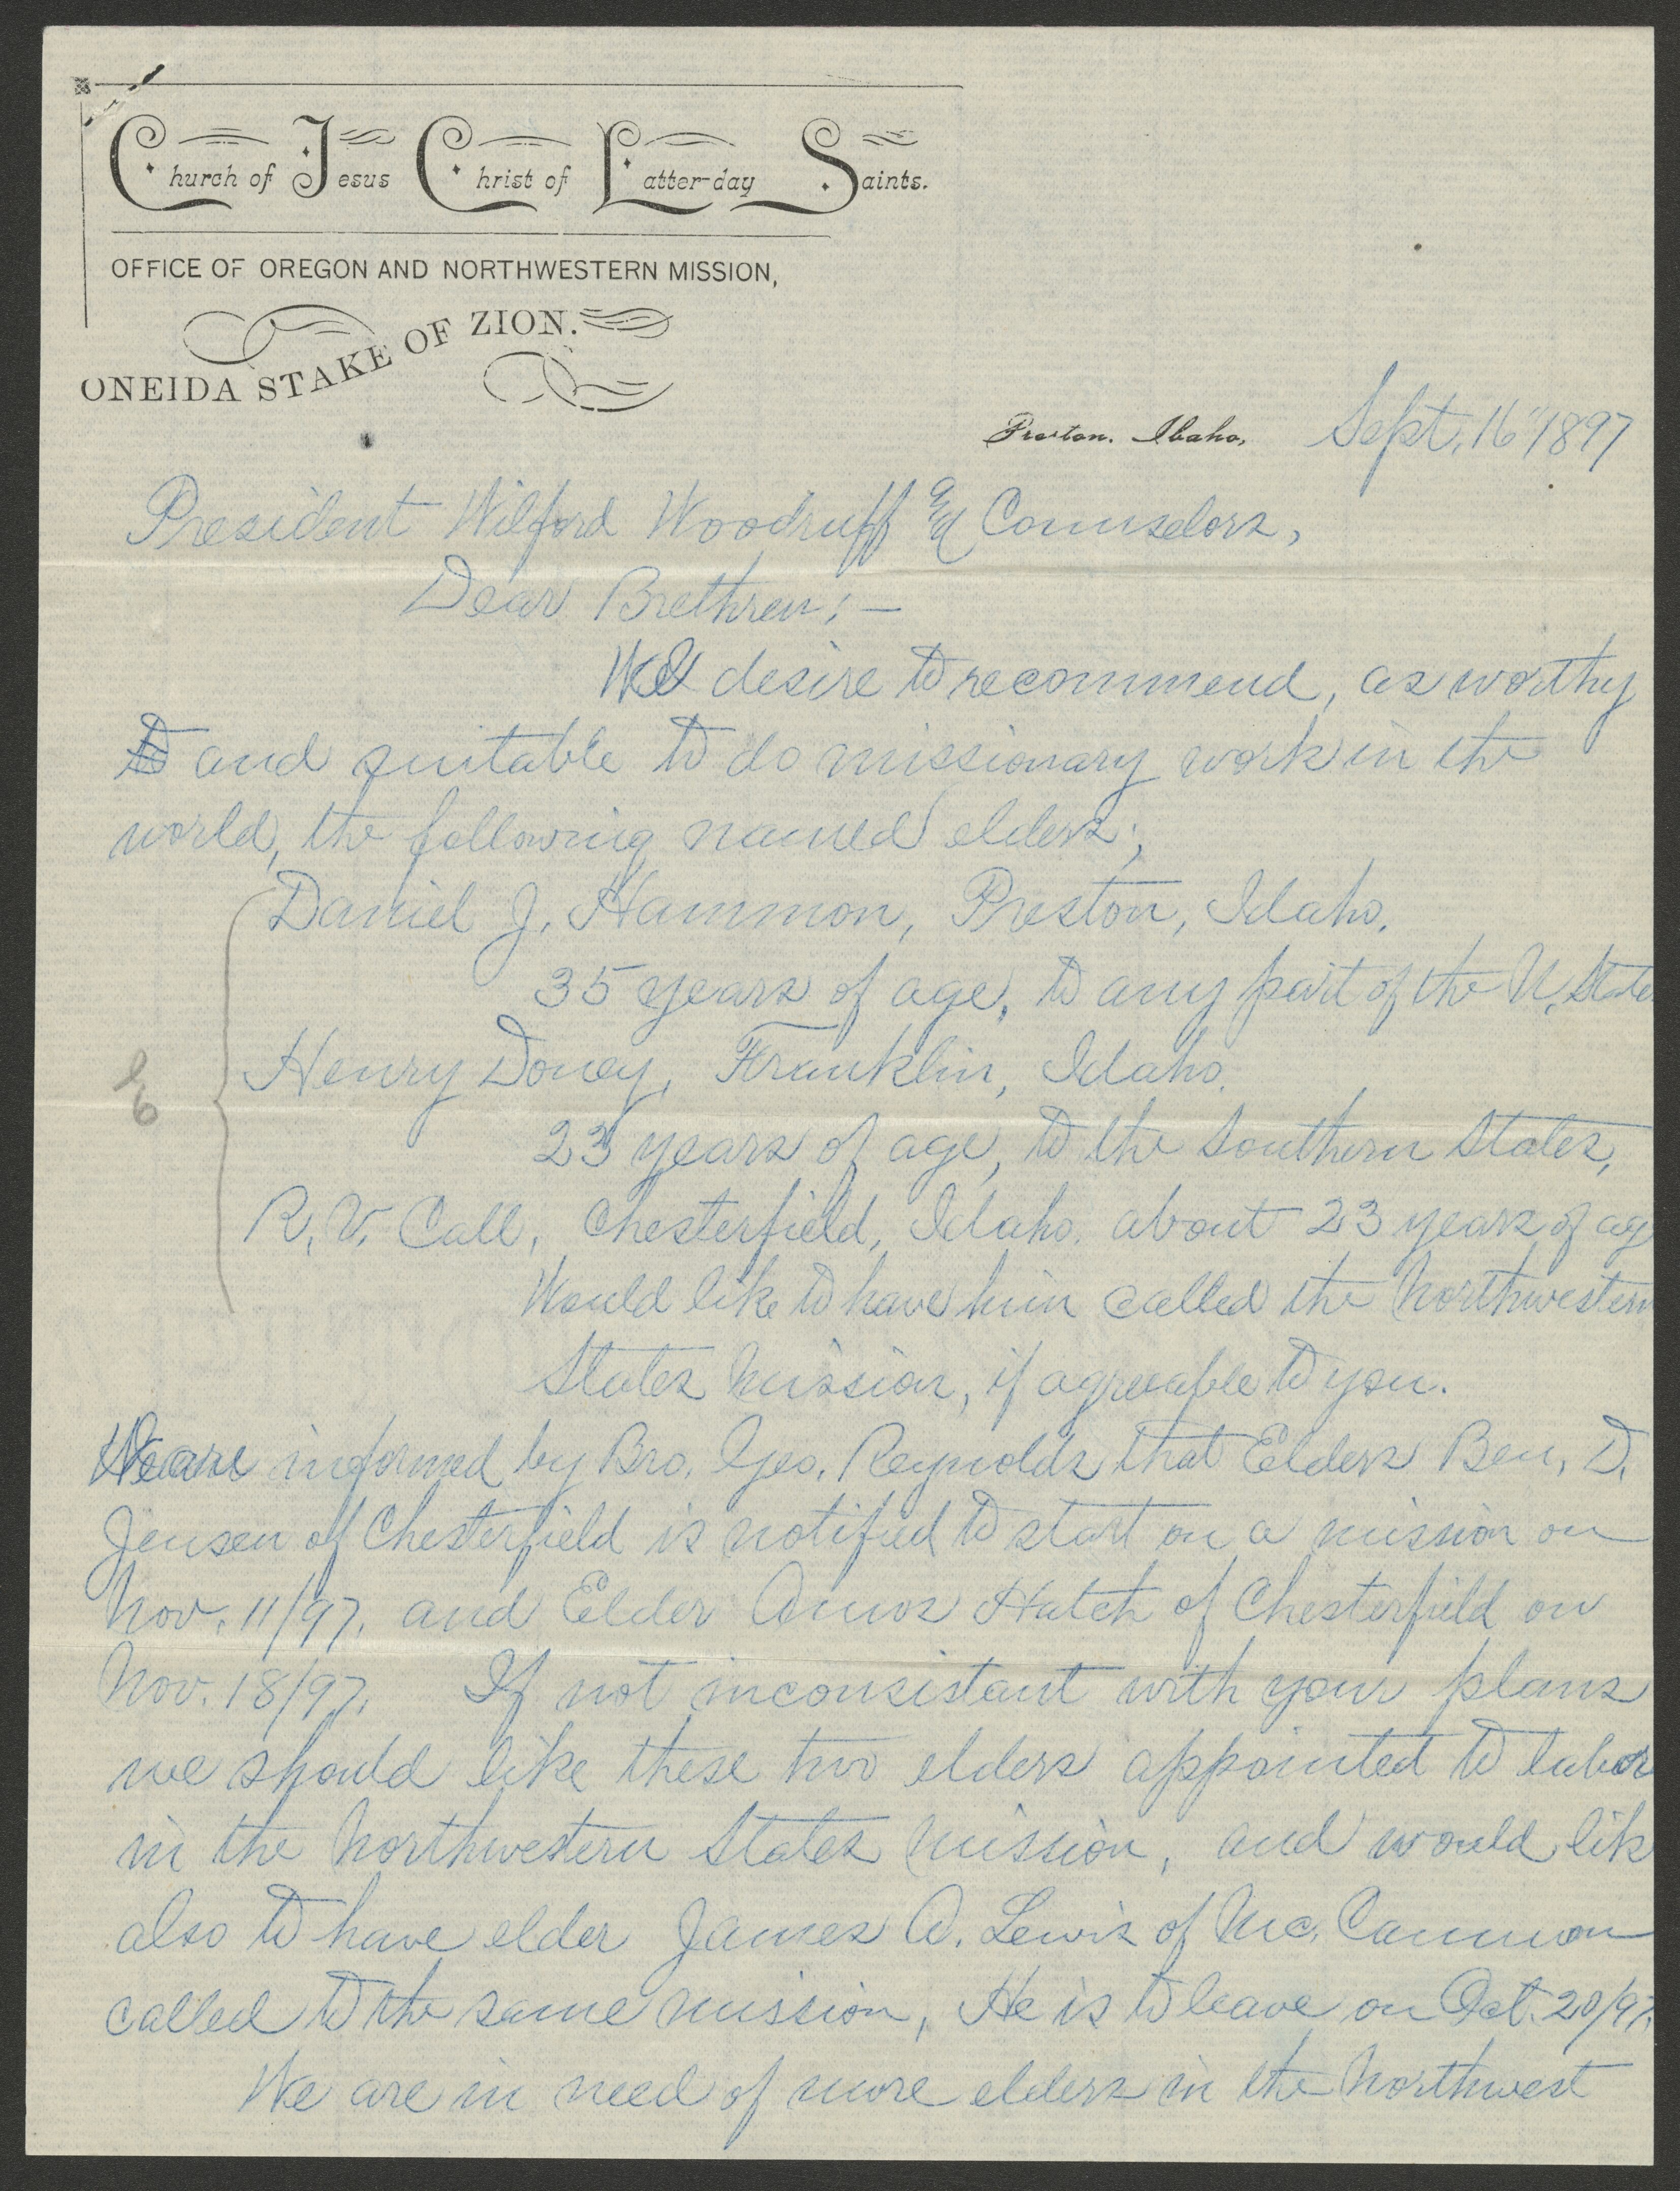 Church of Jesus Christ of Latter-day Saints.
OFFICE OF OREGON AND NORTHWESTERN MISSION,
ONEIDA STAKE OF ZION.
Preston. Idaho, Sept. 16" 1897
President Wilford Woodruff & Counselors,
Dear Brethren;—
We desire to recommend, as worthy
to and suitable to do missionary work in the
world, the following named elders;
Daniel J. Hammon, Preston, Idaho.
35 years of age, to any part of the U. States
Henry Doney, Franklin, Idaho.
23 years of age, to the Southern States,
R. V. Call, Chesterfield, Idaho. about 23 years of ag
Would like to have him called the Northwestern
States Mission, if agreeable to you.
We are informed by Bro. Geo. Reynolds that Elders Ben. D.
Jensen of Chesterfield is notified to start on a mission on
Nov. 11/97. and Elder Amos Hatch of Chesterfield on
Nov. 18/97. If not inconsistant with your plans
we should like these two elders appointed to labor
in the Northwestern States Mission, and would lik
also to have elder James A. Lewis of Mc. Cammon
called to the same mission, He is to leave on Oct. 20/97.
We are in need of more elders in the Northwest